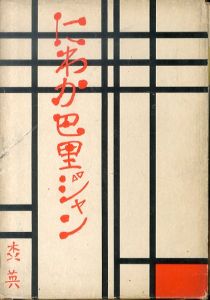 にわか巴里ジャン